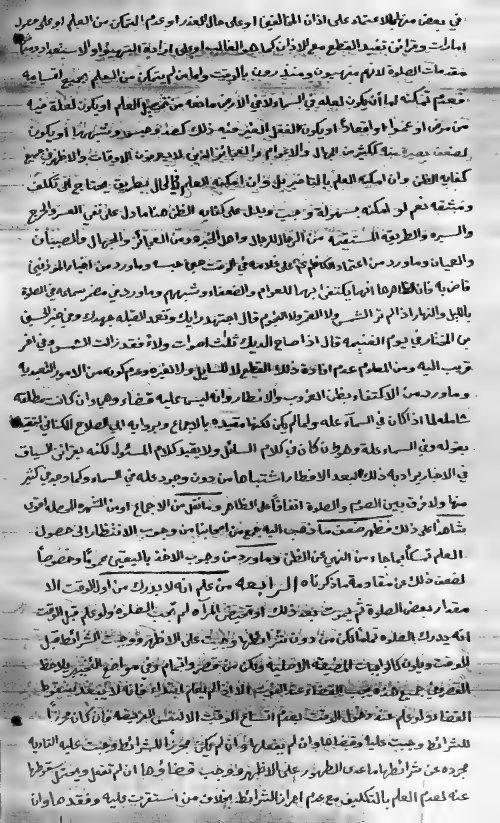 في بعض منها الاعتماد على اذان المخالفين او على حال العذر او عدم التمكن من العلم او على مجرد
امارات وقرائن تفيد القطع مع الاذان كما هو الغالب او على ارادة التهيؤ او الاستعداد
مقدمات الصلوة لانهم متهيئون ومنذرون بالوقت واما من لم يتمكن من العلم بجميع اقسامه
فعدم تمكنه اما ان يكون لعلة في السماء او في الارض مانعة من تحصيل العلم او يكون لعلة فيه
من مرض او عمى او يكون ذلك وحبس وشبههما او يكون
لضعف بصيرة منه ككثير من الجهال والاعوام والعجائز الذين لا يعرفون الاوقات والاظهر في جميع
كفاية الظن وان امكنه العلم بالتاخير بل وان امكنه العلم في الحال بطريق يحتاج الى تكلف
ومشقة نعم لو امكنه بسهولة وجب ويدل على كفاية الظن هنا ما دل على نفي العسر والحرج
والسيرة والطريقة المستقيمة من الرجال واهل الخبرة ومن العجائز والجهال والصبيان
والعميان وما ورد من اعتماد الكاظم على غلامه في الوقت حين حبسه وما ورد من اخبار المؤذنين
قاضية فان ظاهرها انها يكتفى بها للعوام والضعفاء وشبههم وما ورد في مضمر سماعة في الصلوة
بالليل والنهار اذا لم تر الشمس ولا القمر ولا النجوم قال اجتهد رايك وتعمد القبلة جهدك وعن خبر الحسين
بن المختار في يوم الغيم قال اذا صاح الديك ثلث اصوات ولاء فقد زالت الشمس وفي اخر
قريب اليه ومن المعلوم عدم افادة ذلك القطع لا للسائل ولا لغيره وعدم كونه من الامور التعبدية
وما ورد من الاكتفاء بظن الغروب والافطار وانه ليس عليه قضاء وهما وان كانت مطلقة
شاملة لما اذا كان في السماء علة ولما لم يكن لكنها مقيدة بالاجماع وبرواية ابي الصلاح الكناني المتقيد
بقوله وفي السماء علة وهو وان كان في كلام السائل ولا يقيد كلام المسئول لكنه بقرائن السياق
في الاخبار يراد به ذلك لبعد الافطار اشتباها من دون وجود علة في السماء وكما وجد في كثير
منها ولا فرق بين الصوم والصلوة اتفاقا على الظاهر وما نقل من الاجماع او من الشهرة الموصلة اقوى
شاهدا على ذلك فظهر ضعف ما ذهب اليه جمع من اصحابنا من وجوب الانتظار الى حصول
العلم تمسكا بما جاء من النهي عن الظن وما ورد من وجوب الاخذ باليقين عموما وخصوصا
لضعف ذلك عن مقاومة ما ذكرناه الرابعة من علم انه لا يدرك من اول الوقت الا
مقدار بعض الصلوة ثم يموت بعد ذلك او تحيض المرأة لم تجب الصلوة ولو علم قبل الوقت
انه يدرك الصلوة تماما لكن من دون شرائطها وجبت على الاظهر ووجبت الشرائط قبل
الوقت ويكون كالواجبات المضيقة الاصلية ويكن من قصر واتمام وفي مواضع التخيير يلاحظ
القصر في جميع هذه يجب القضاء عند الفوت الا اذا لم يعلم ابتداء فانه لا تنعقد بسقوط
القضاء ولو علم عند دخول الوقت بعدم اتساع الوقت الا لنفس الفريضة فان كان محرزا
للشرائط وجبت عليه وقضاها وان لم يفعلها وان لم يكن محرزا للشرائط وجبت عليه التادية
مجردة عن شرائطها ما عدى الطهور على الاظهر ووجب قضاؤها ان لم تفعل ويحتمل سقوطها
عنه لعدم العلم بالتكليف مع عدم احراز الشرائط بخلاف من استقرت عليه وفقدها وان